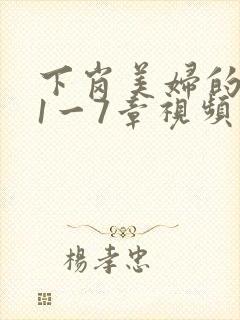 下岗美婦的
1一7章視頻
楊孝忠